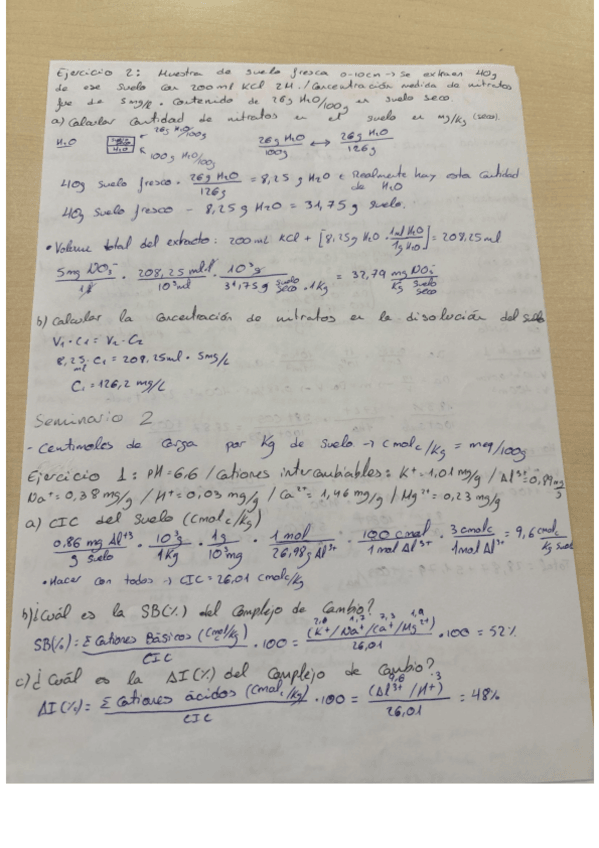 Ejercicio 2: Muestra de suelo fresca 0-10cm → Se extraen 40g
de ese suelo con 200ml KCl 2M. / Concentración medida de nitratos
fue de 5mg/L. Contenido de 26g H₂O/100g en suelo seco.
a) Calcular cantidad de nitratos en el suelo en mg/kg (seco).
H₂O 26g H₂O/100g
100g H₂O/100g
26g H₂O/100g ↔ 26g H₂O/126g
40g suelo fresco · 26g H₂O/126g = 8,25g H₂O ← Realmente hay esta cantidad de H₂O
40g suelo fresco - 8,25g H₂O = 31,75g suelo.
• Volumen total del extracto: 200ml KCl + [8,25g H₂O · 1ml H₂O/1g H₂O] = 208,25ml
5mg NO₃⁻/1l · 208,25ml/10³ml · 10³g/31,75g suelo seco · 1kg = 32,79 mg NO₃⁻/kg suelo seco
b) Calcular la concentración de nitratos en la disolución del suelo
V₁ · C₁ = V₂ · C₂
8,25 ml · C₁ = 208,25ml · 5mg/L
C₁ = 126,2 mg/L
Seminario 2
- Centimoles de carga por Kg de suelo → cmolc/kg = meq/100g
Ejercicio 1: pH=6,6 / Cationes intercambiables: K⁺=1,01mg/g / Al³⁺=0,89mg/g
Na⁺=0,38mg/g / H⁺=0,03mg/g / Ca²⁺=1,46mg/g / Mg²⁺=0,23mg/g
a) CIC del suelo (cmolc/kg)
0,86 mg Al⁺³/g suelo · 10³g/1Kg · 1g/10³mg · 1mol/26,98g Al³⁺ · 100 cmol/1mol Al³⁺ · 3cmolc/1mol Al³⁺ = 9,6 cmolc/Kg suelo
• Hacer con todos → CIC = 26,01 cmolc/kg
b) ¿Cuál es la SB(%) del complejo de cambio?
SB(%) = Σ Cationes Básicos (cmolc/kg)/CIC · 100 = (K⁺/Na⁺/Ca⁺/Mg²⁺)/26,01 · 100 = 52%
c) ¿Cuál es la AI(%) del complejo de cambio?
AI(%) = Σ Cationes ácidos (cmolc/kg)/CIC · 100 = (Al³⁺/H⁺)/26,01 = 48%